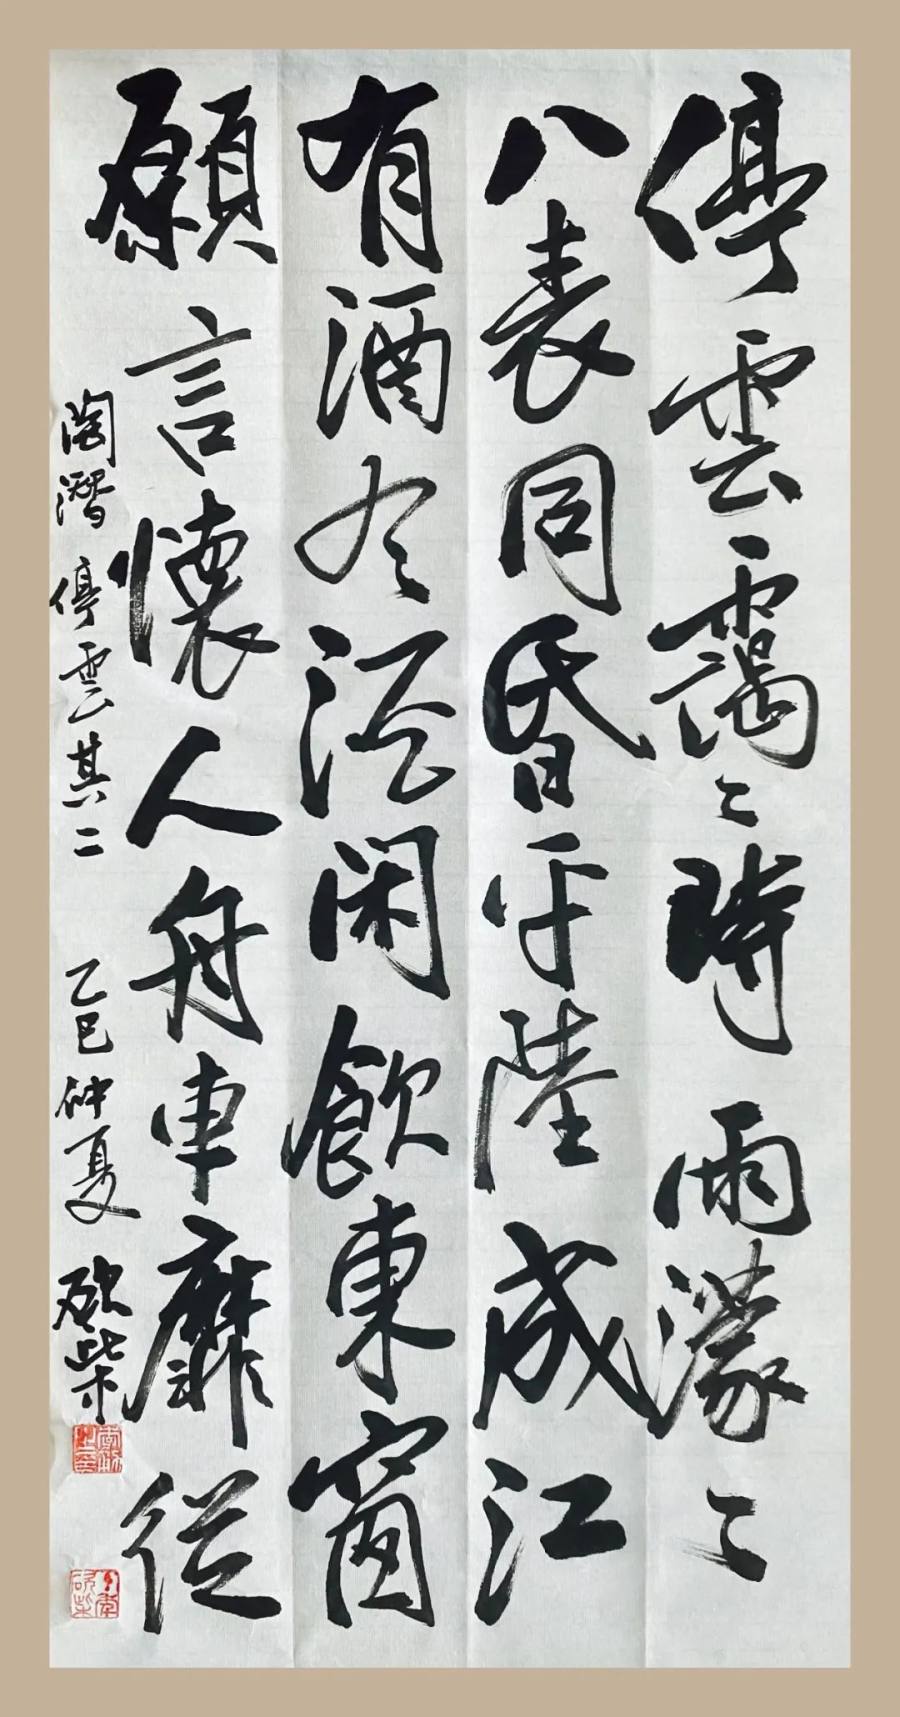 停雲靄〻時雨濛〻
八表同昏平陸成江
有酒有酒閑飲東窗
願言懷人舟車靡從
陶潛 停雲其二 乙巳仲夏 砍柴